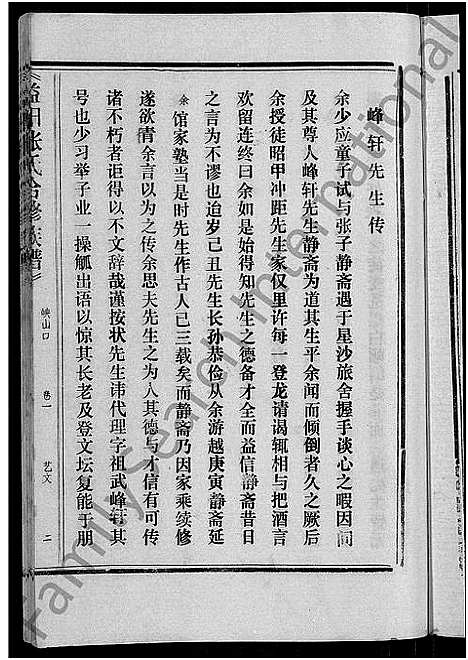 峰轩先生传
余少应童子试与张子静斋遇于星沙旅舍握手谈心之暇因间
及其尊人峰轩先生静斋为道其生平余闻而倾倒者久之厥后
余授徒昭甲冲距先生家仅里许每一登龙请谒辄相与把酒言
欢留连终日余如是始得知先生之德备才全而益信静斋昔日
之言为不谬也迨岁己丑先生长孙恭俭从余游越庚寅静斋延
余馆家塾当是时先生作古人已三载矣而静斋乃因家乘续修
遂欲青余言以为之传余思夫先生之为人其德与才信有可传
诸不朽者讵得以不文辞哉谨按状先生讳代理字祖武峰轩其
号也少习举子业一操觚出语以惊其长老及登文坛复能于朋
益阳张氏合修族谱
峡山口 卷一 艺文 二
FamilySearch International